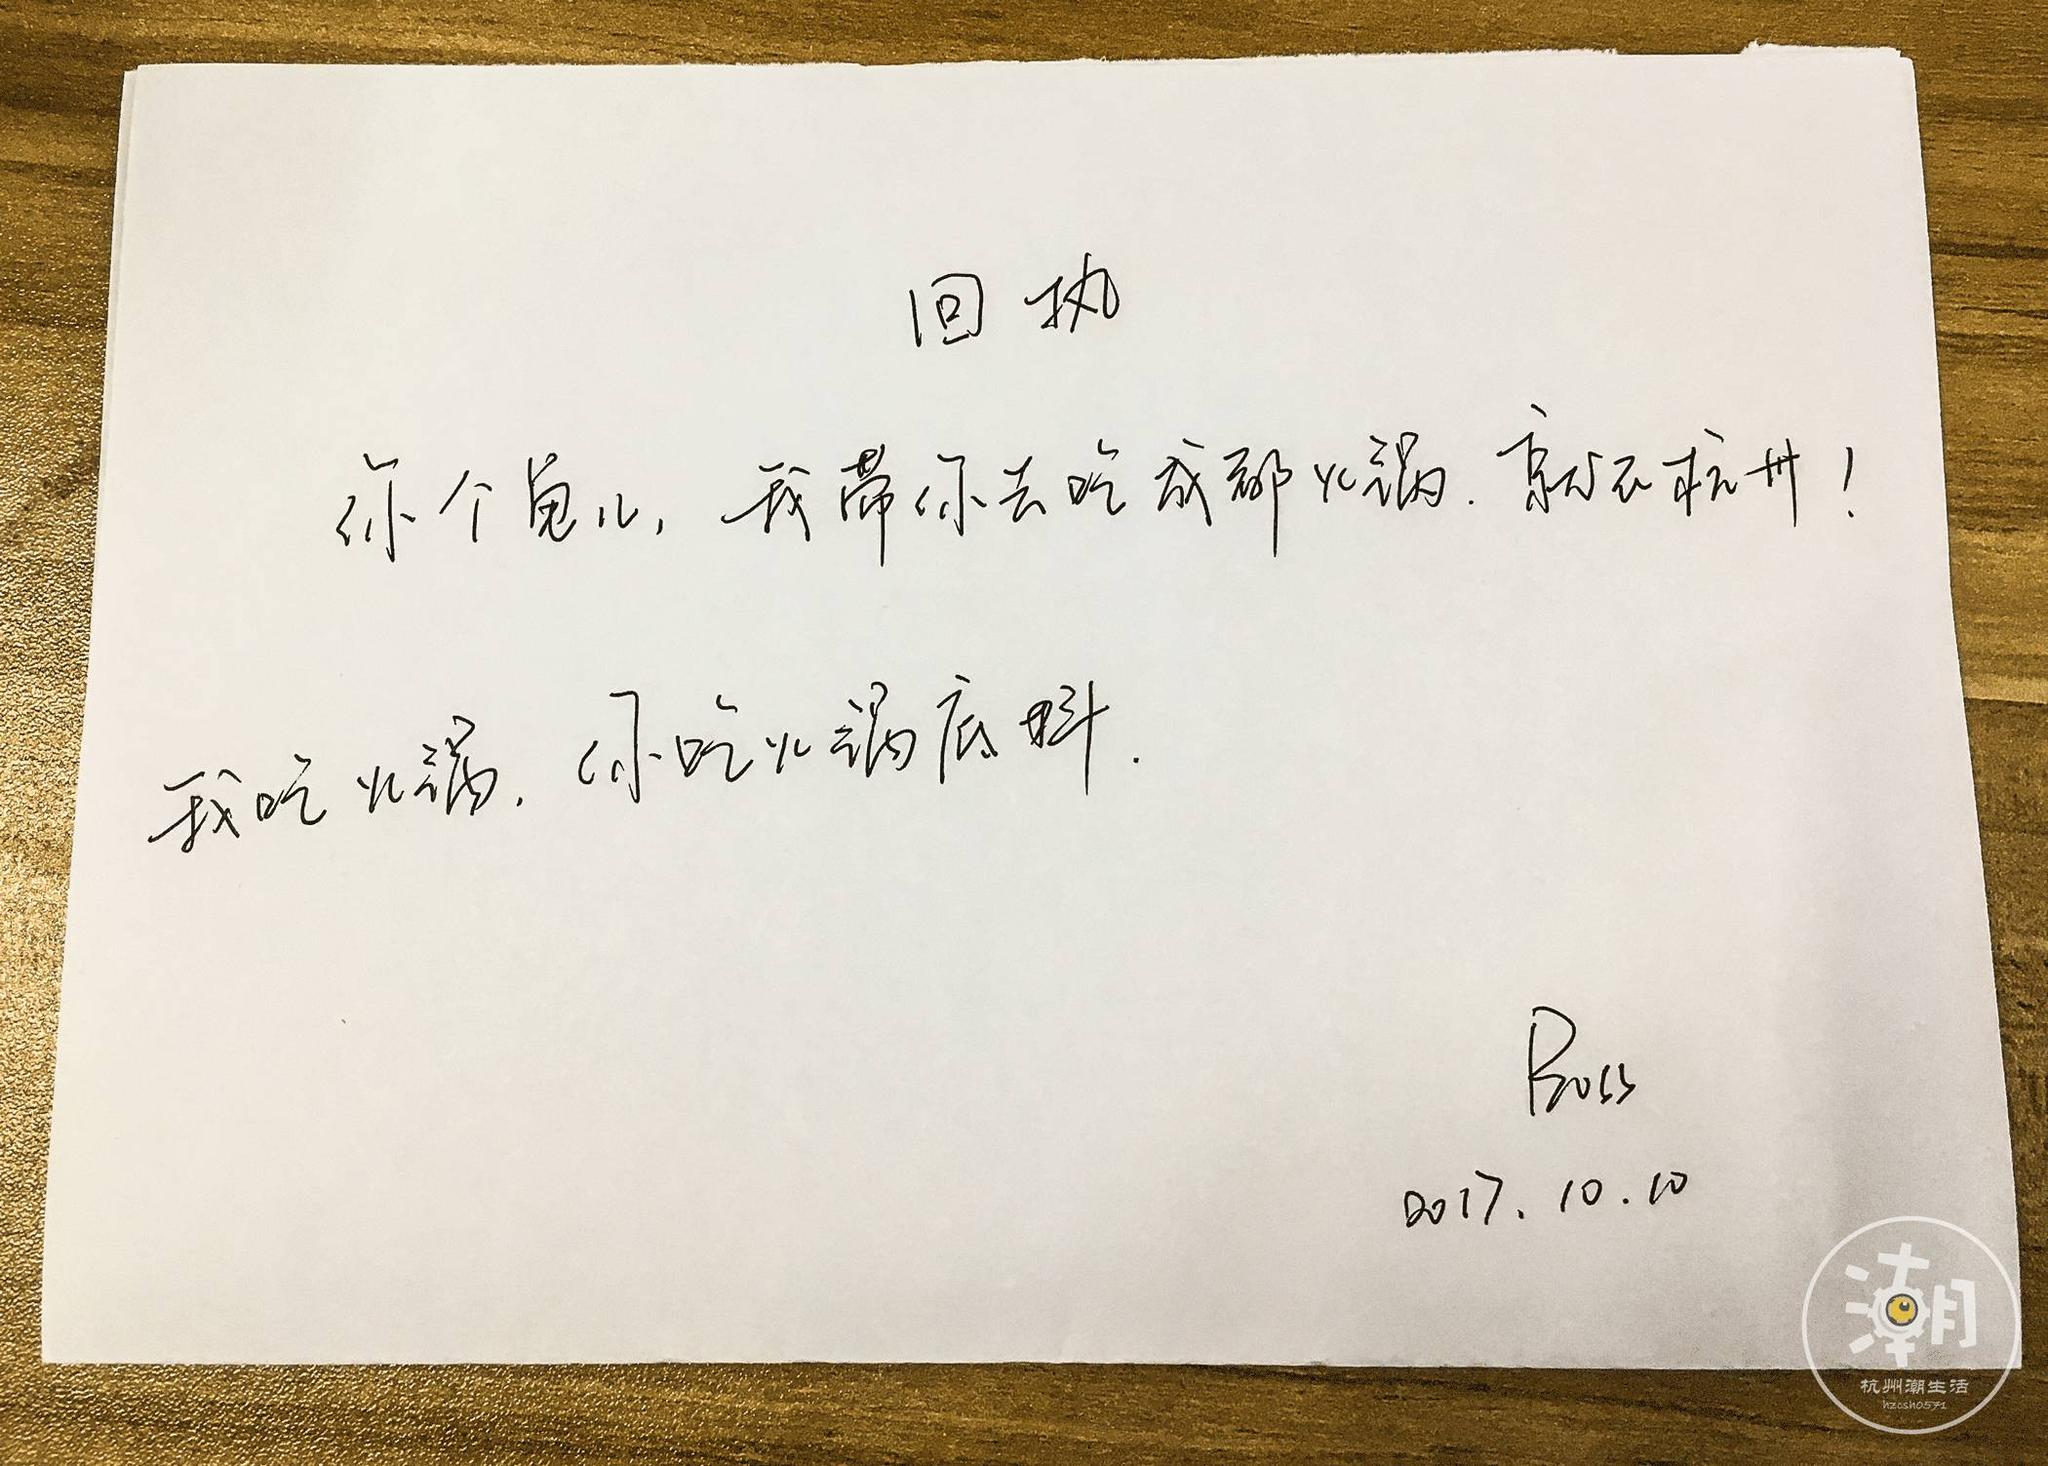 回执
你个龟儿,我带你去吃成都火锅.就在杭州!
我吃火锅,你吃火锅底料.
Boss
2017.10.10
潮
杭州潮生活
hzcsh0571